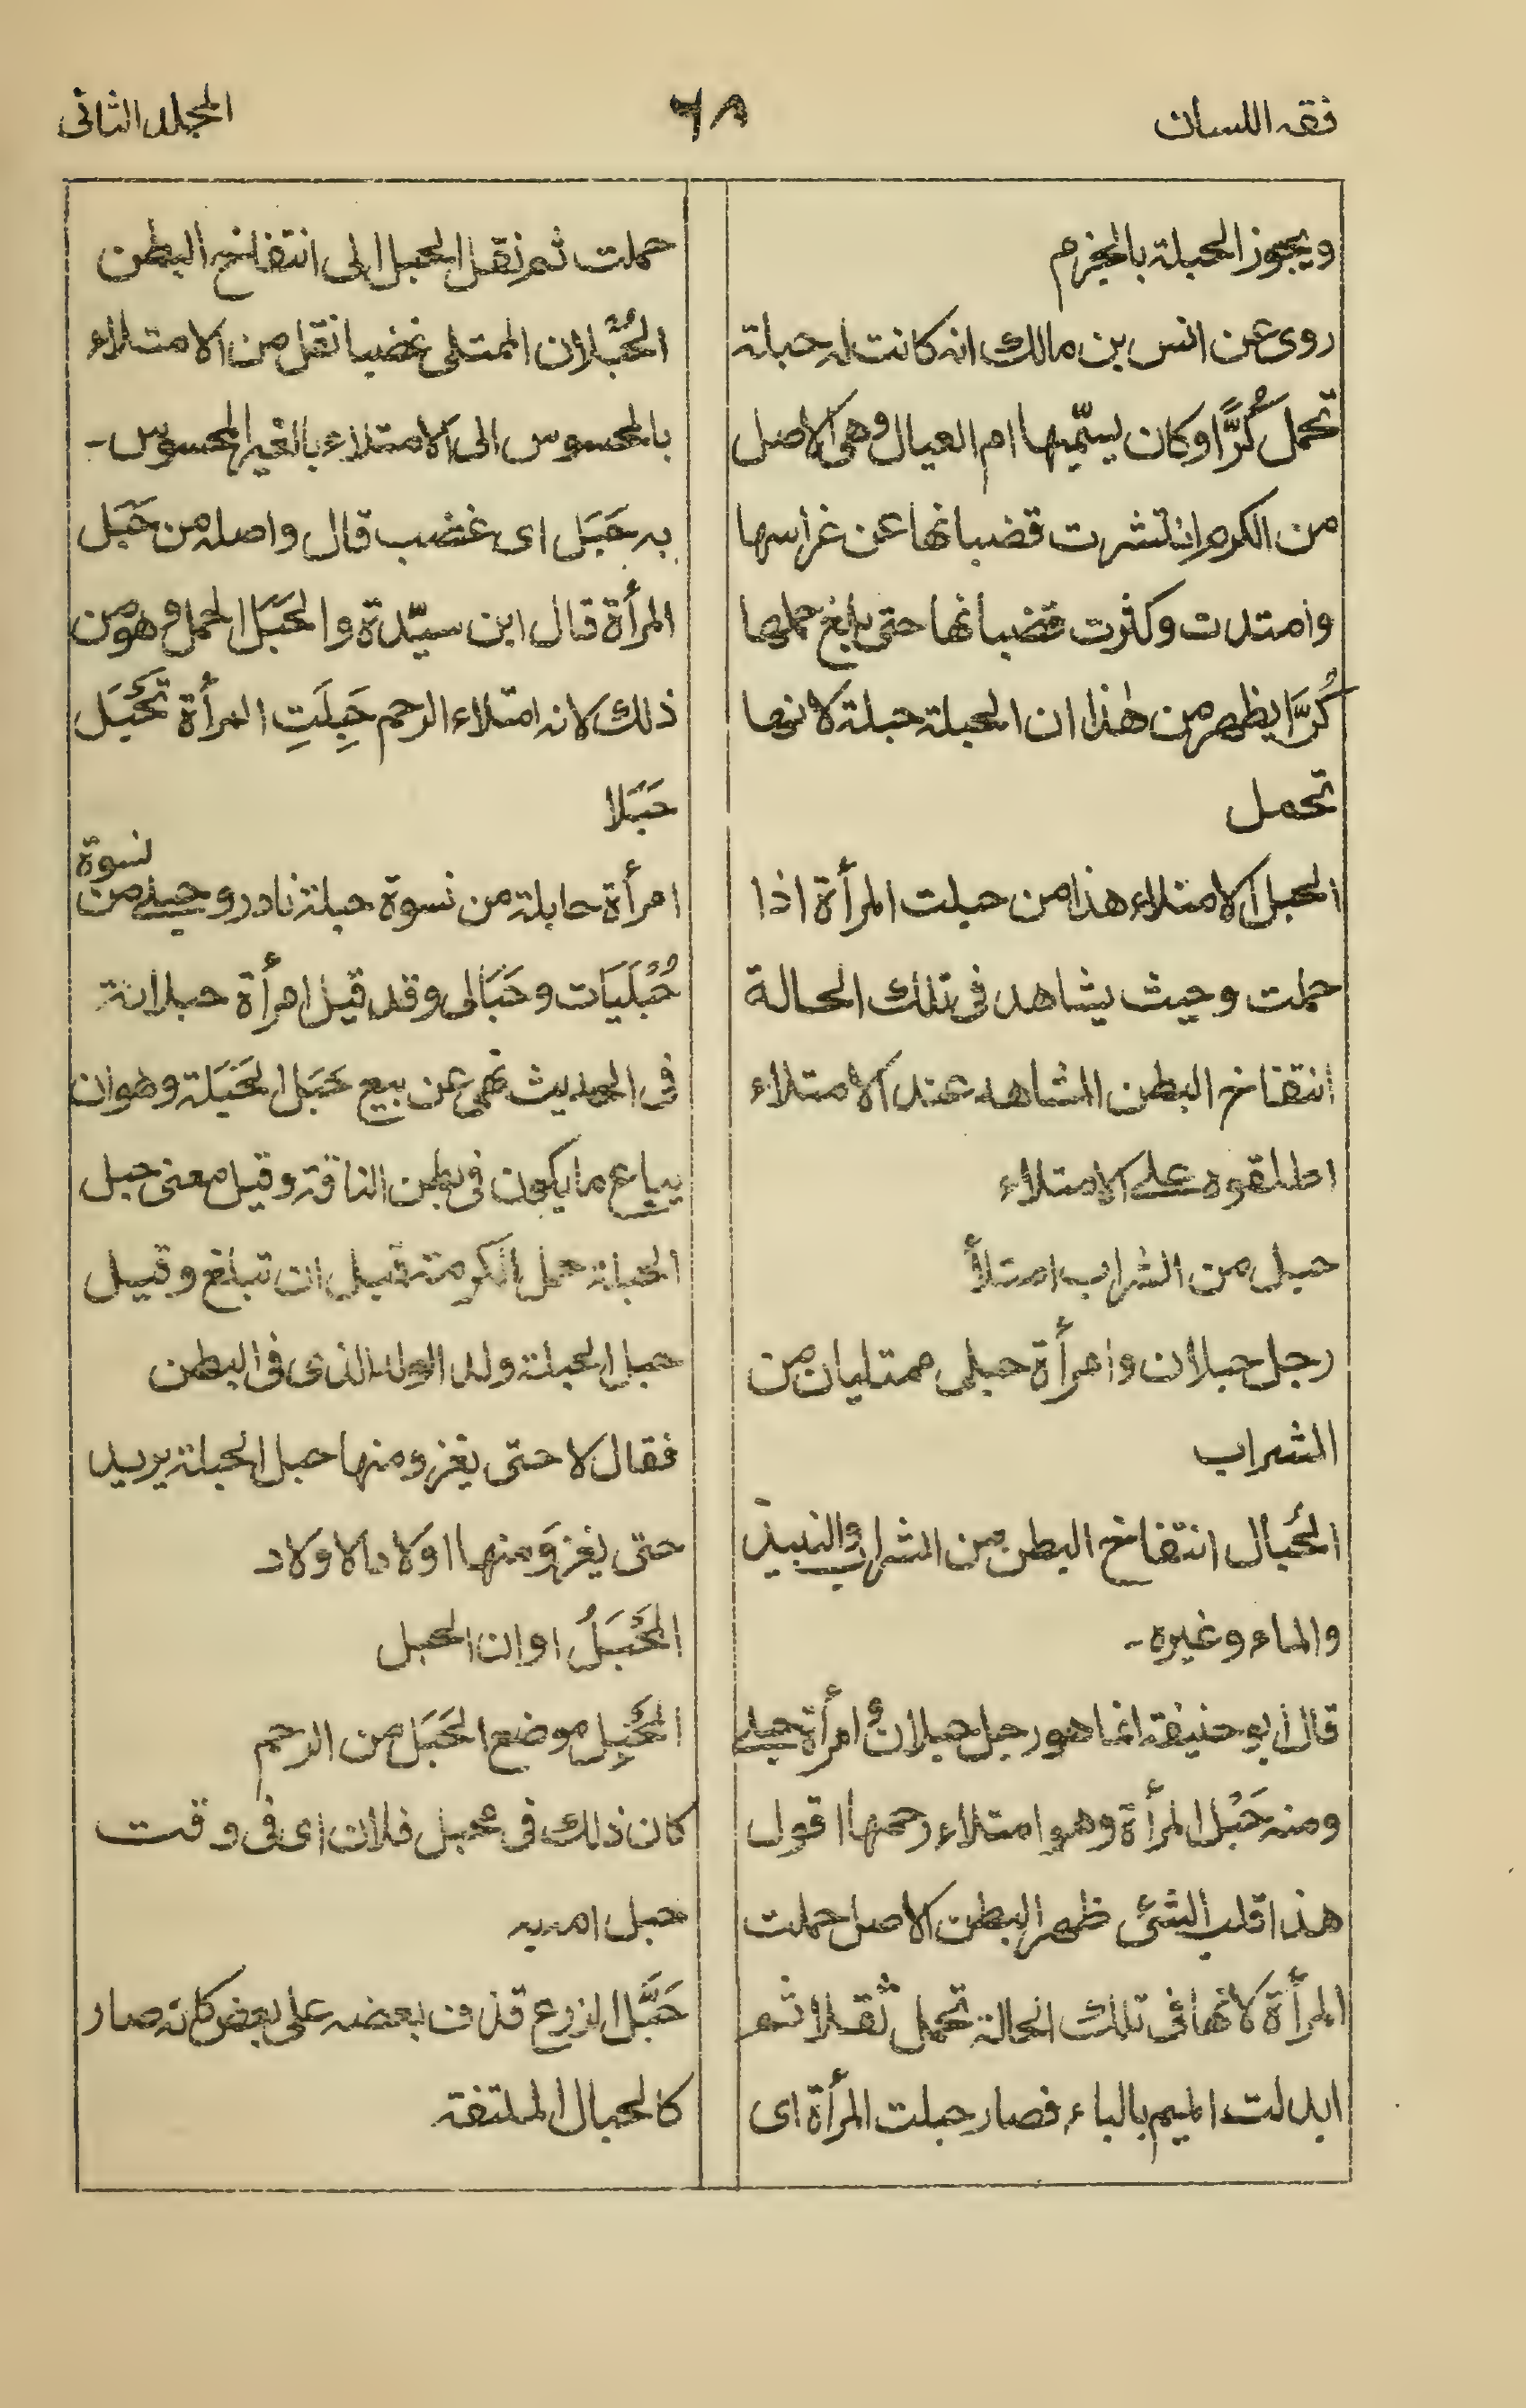 فقه اللسان
٦٨
المجلد الثانى
ويجوز الحبلة بالجزم
روى عن انس بن مالك انه كانت له حبلة
تحمل كُرًّا وكان يسمّيها ام العيال وهى الاصل
من الكرم انتشرت قضبانها عن غراسها
وامتدت وكثرت قضبانها حتى بلغ حملها
كُرًّا يظهر من هذا ان الحبلة حبلة لانها
تحمل
الحبل الامتلاء هذا من حبلت المرأة اذا
حملت وحيث يشاهد فى تلك الحالة
انتفاخ البطن المشاهد عند الامتلاء
اطلقوه على الامتلاء
حبل من الشراب امتلأ
رجل حبلان وامرأة حبلى ممتليان من
الشراب
الحُبال انتفاخ البطن من الشراب والنبيذ
والماء وغيره۔
قال ابو حنيفة انما هو رجل حبلانُ امرأة حبلى
ومنه حَبَل المرأة وهو امتلاء رحمها اقول
هذا قلب الشئ ظهر البطن لاصل حملت
المرأة لانها فى تلك الحالة تحمل ثقلا ثم
ابدلت الميم بالباء فصار حبلت المرأة اى
حملت ثم نقل الحبل الى انتفاخ البطن
الحُبْلان الممتلى غضبا نقل من الامتلاء
بالمحسوس الى الامتلاء بالغير المحسوس۔
به حَبَل اى غضب قال واصله من حَبَل
المرأة قال ابن سيّدة والحَبَل الحمل وهو من
ذلك لانه امتلاء الرحم حَبِلَتِ المرأة تَحْبَل
حَبَلا
امرأة حابلة من نسوة حبلة نادر وحبلى من نسوة
حُبْلَيَات وحَبَالى وقد قيل امرأة حبلانة
فى الحديث نهى عن بيع حَبَل الحَبَلة وهو ان
يباع ما يكون فى بطن الناقة وقيل معنى حبل
الحبلة حمل الكرمة قبل ان تبلغ وقيل
حبل الحبلة ولد الولد الذى فى البطن
فقال لا حتى يغزو منها حبل الحبلة يريد
حتى يغزوَ منها اولاد الاولاد
المَحْبَلُ اوان الحبل
المَحْبِل موضع الحَبَل من الرحم
كان ذلك فى محبل فلان اى فى وقت
حبل امه به
حَبَّل الزرع قذف بعضه على بعض كانه صار
كالحبال الملتفة